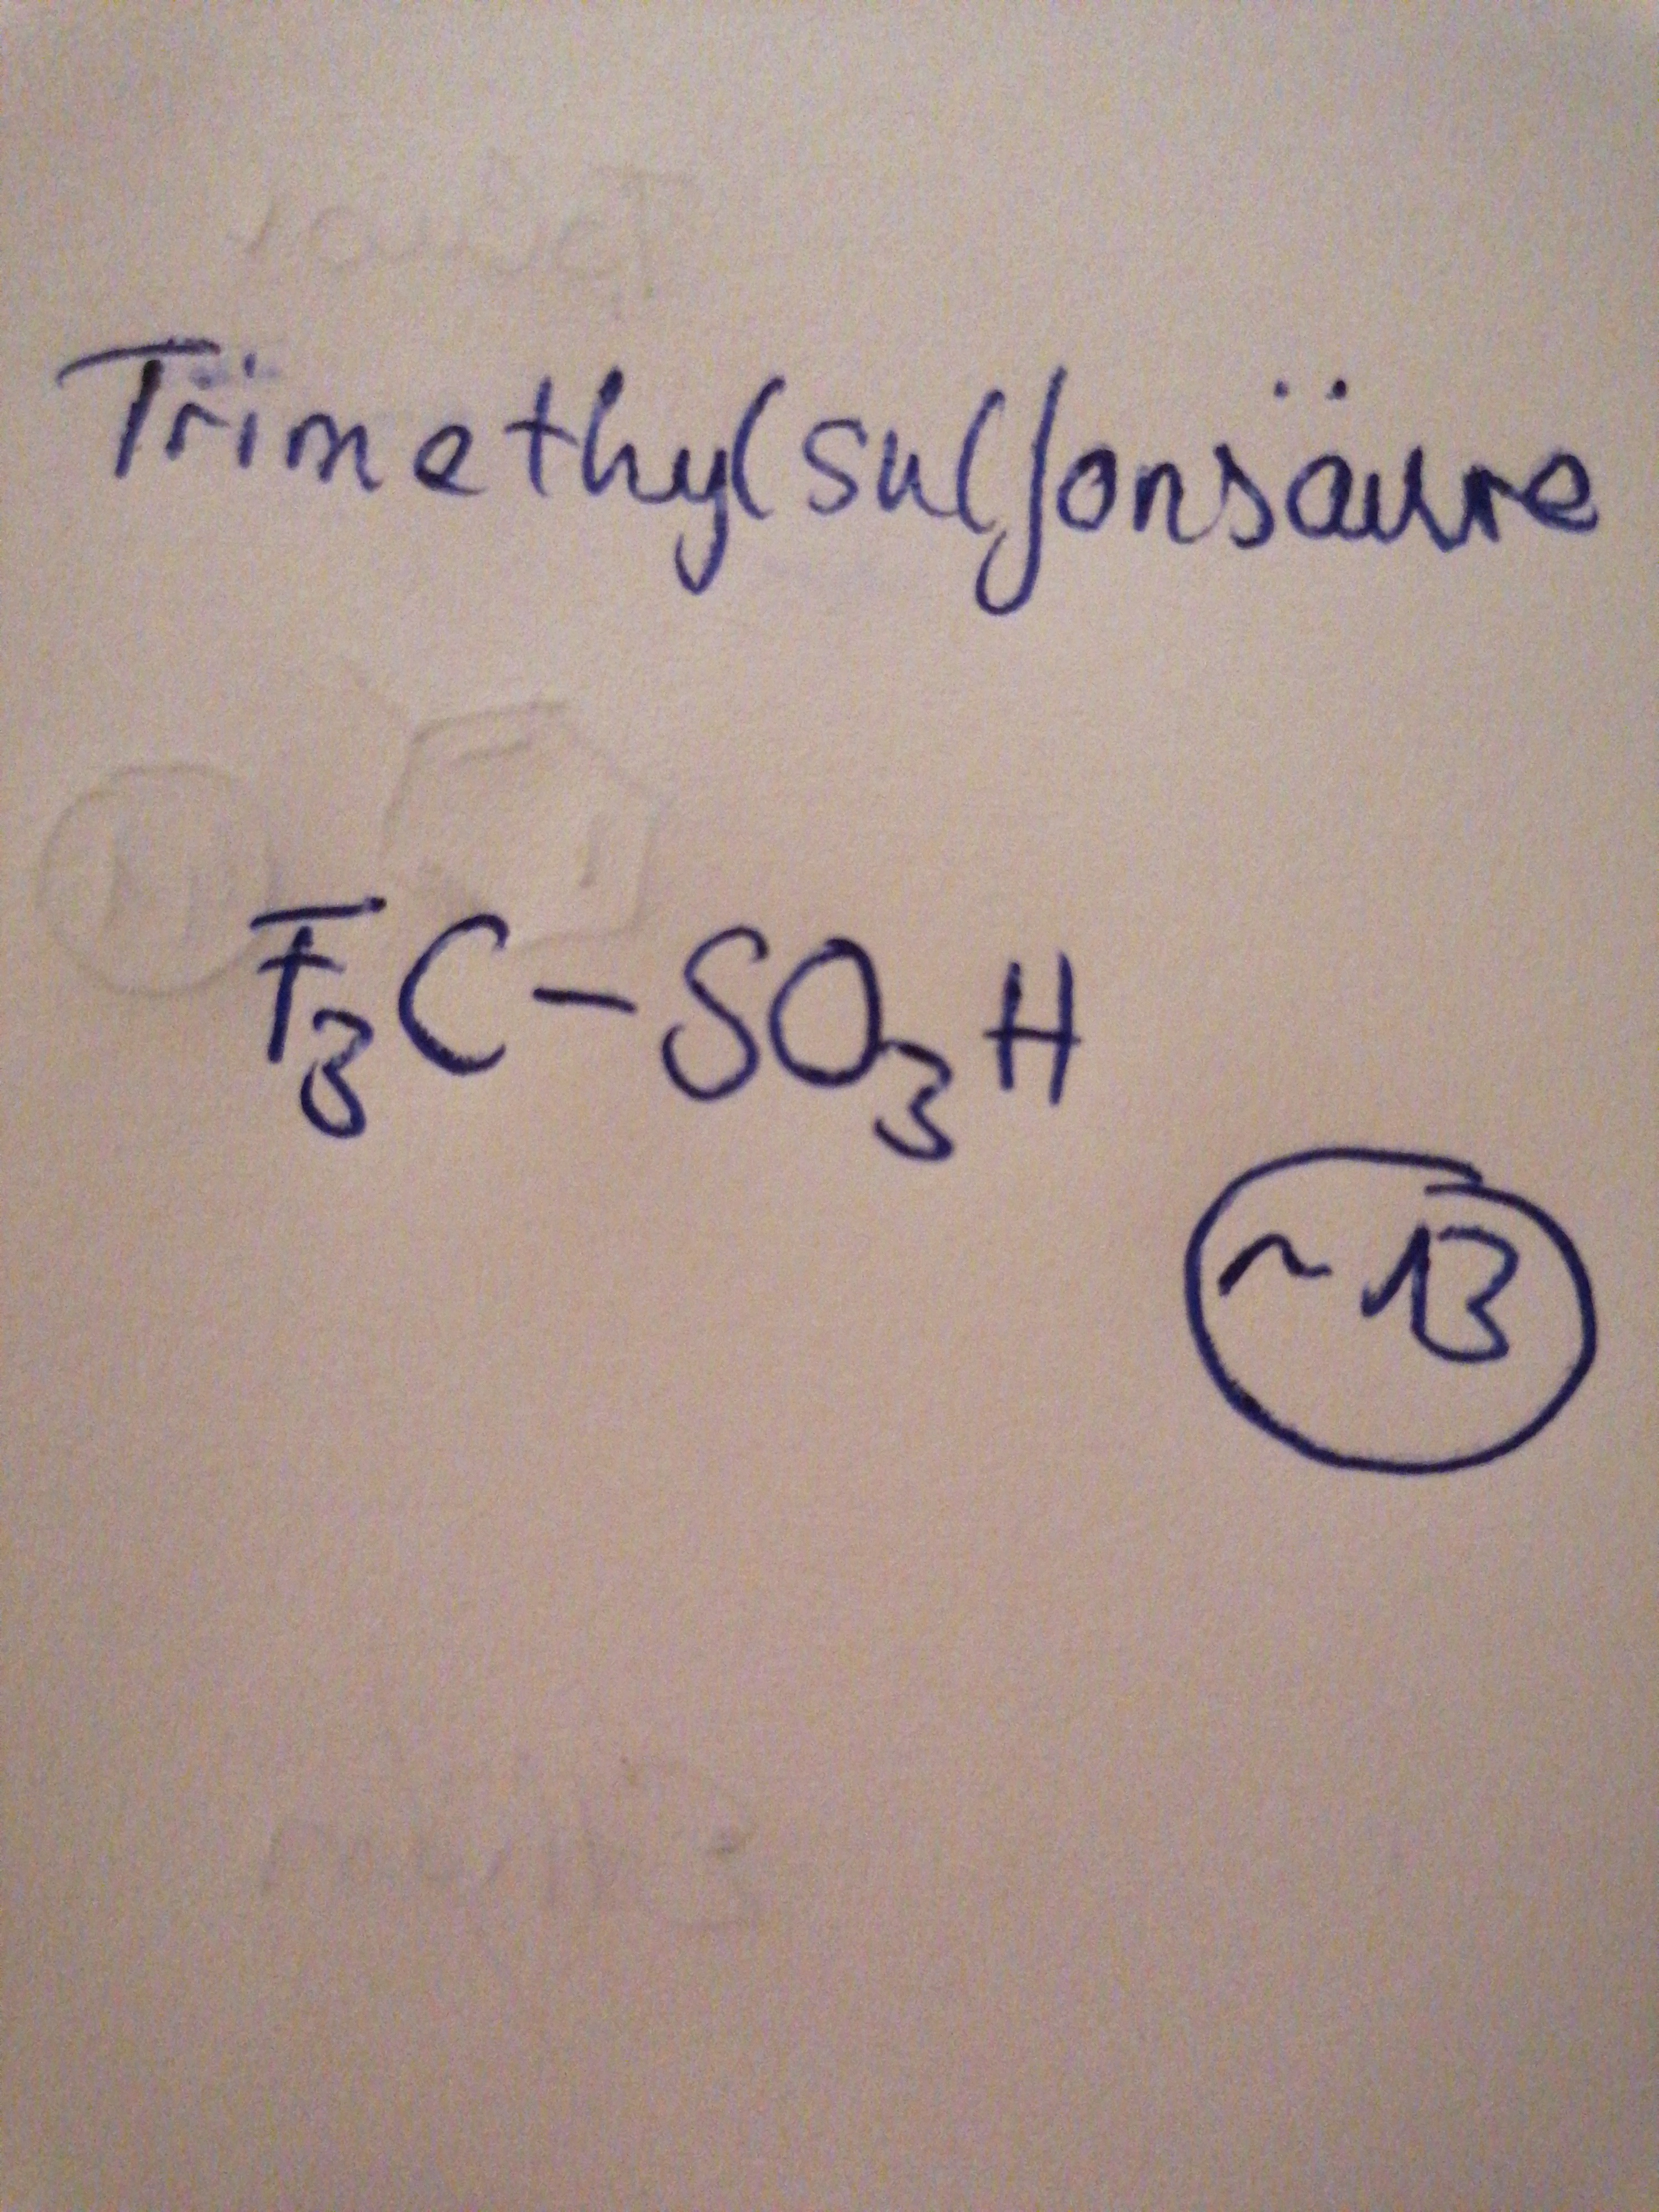 Trimethylsulfonsäure
F₃C-SO₃H
~13